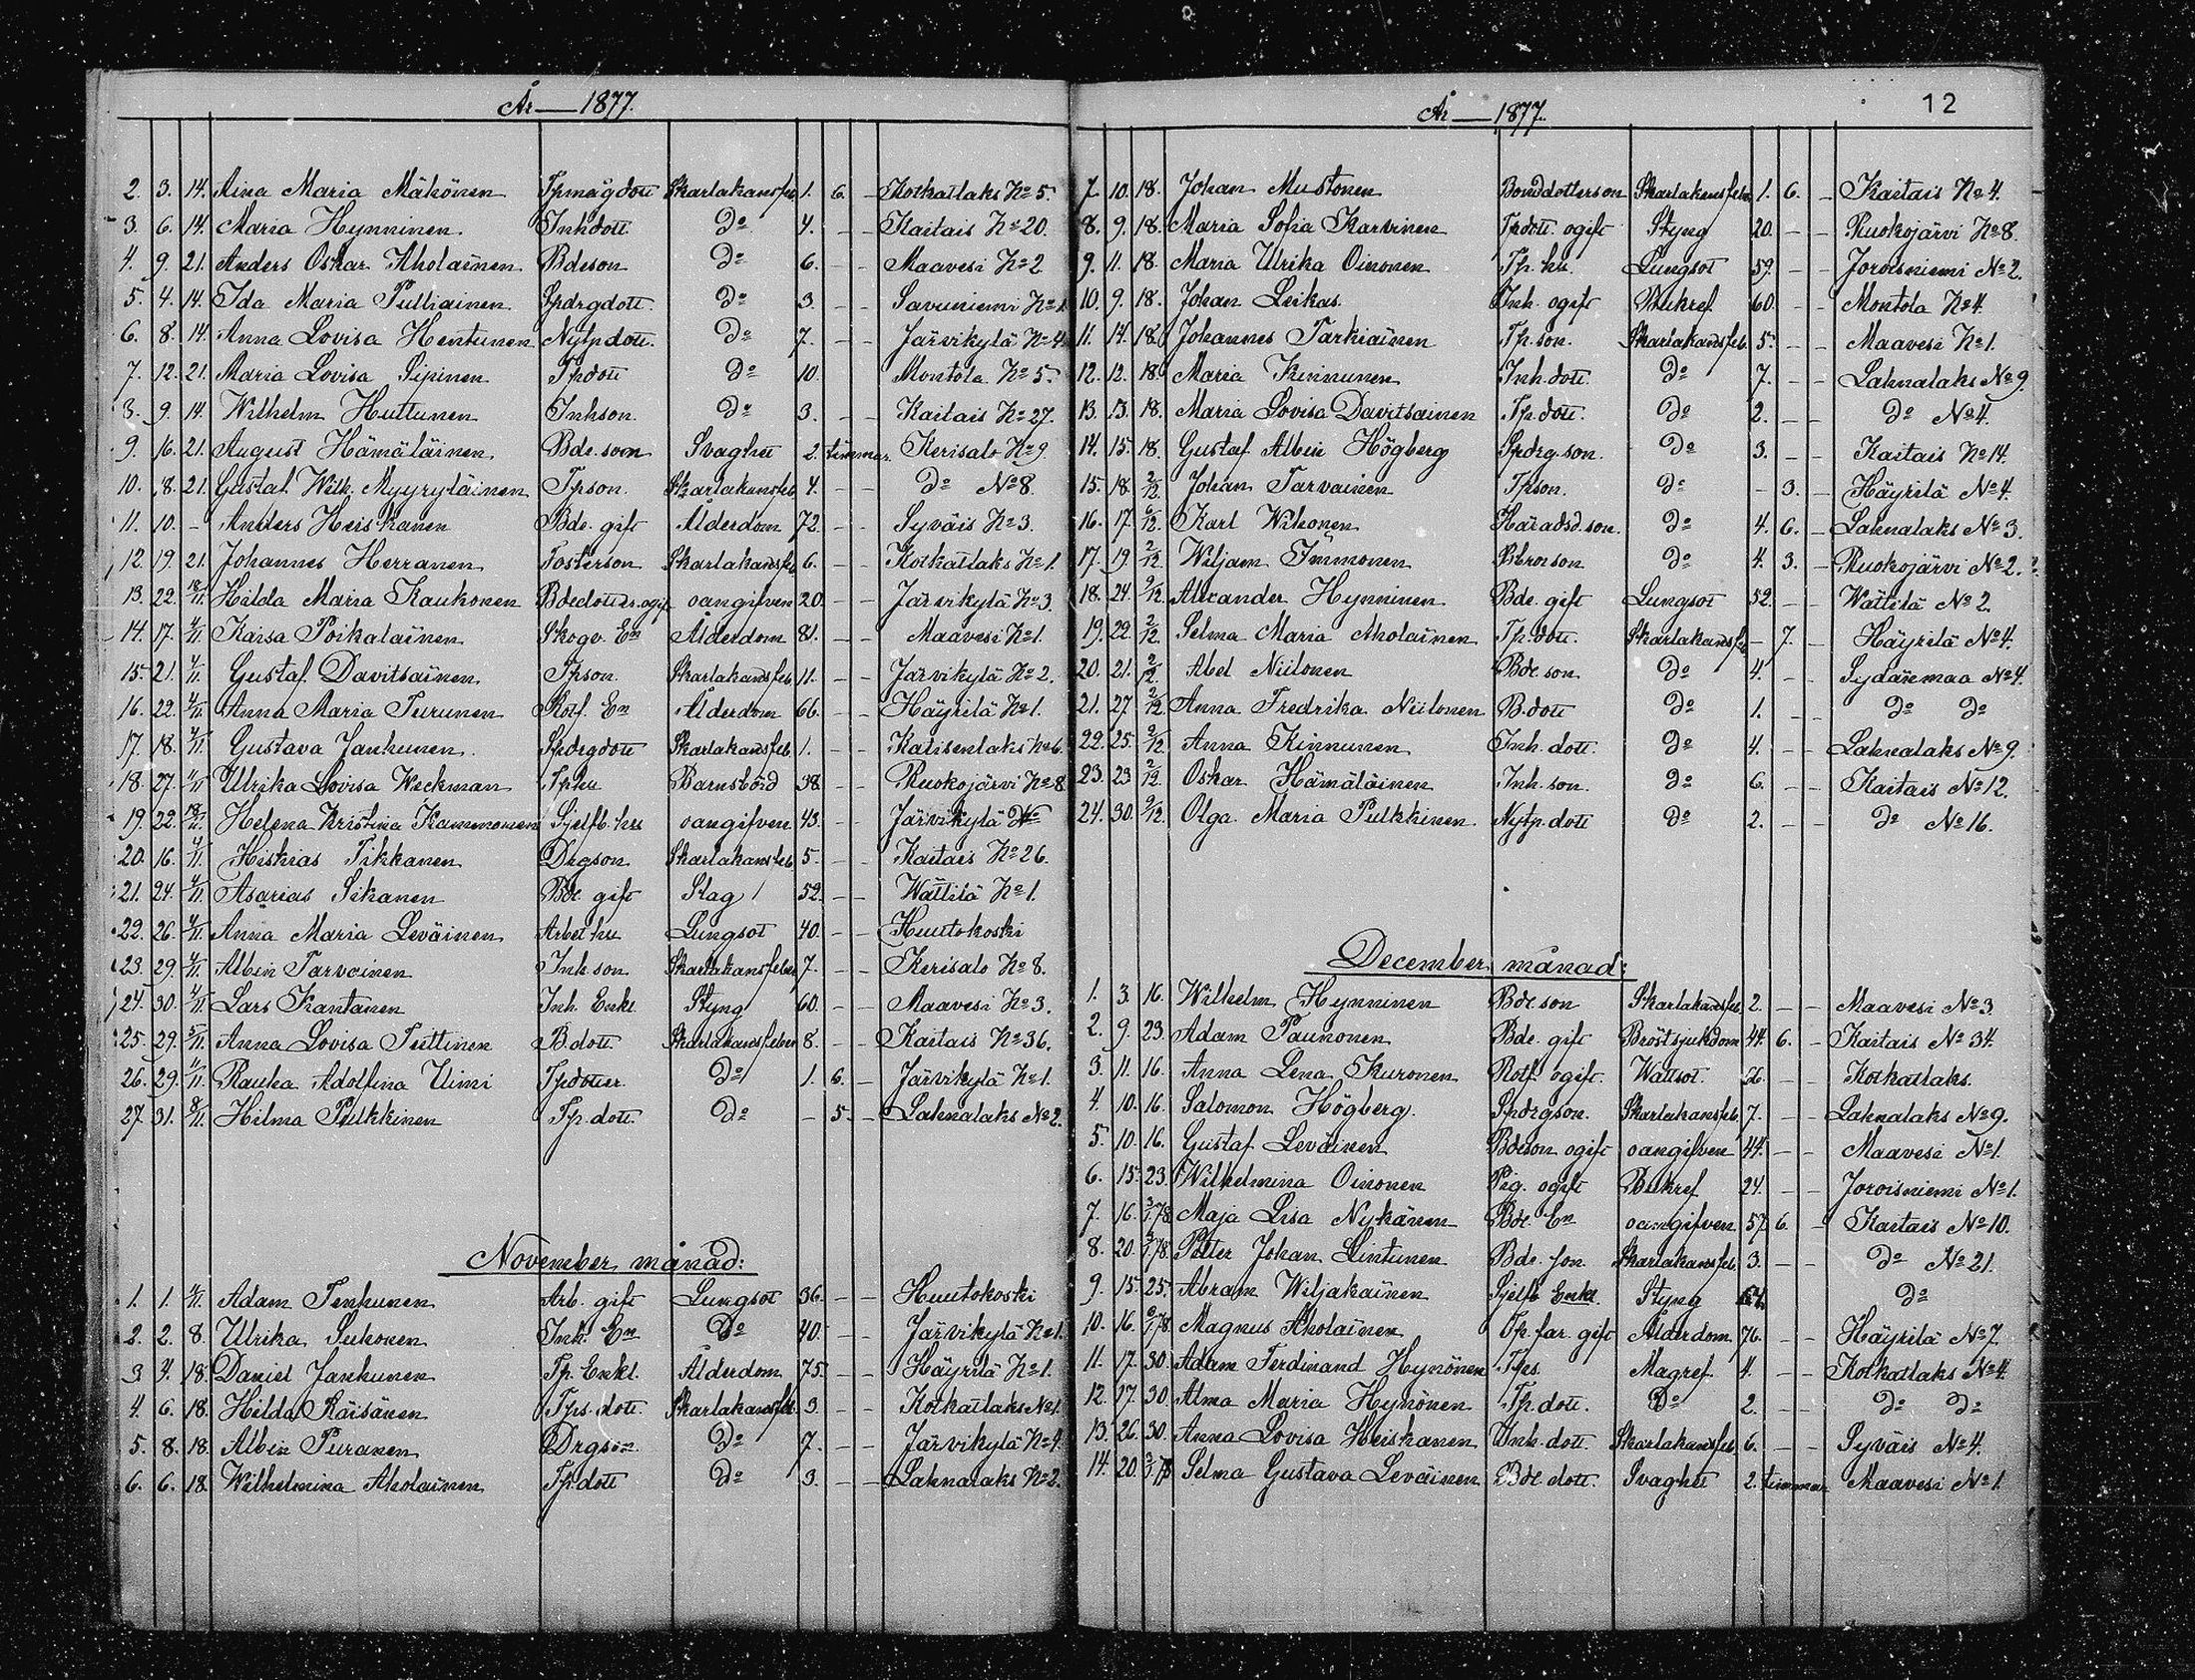 År 1877.
2. 3. 14. Aina Maria Mähönen Tpmågdott Skarlakansfeb. 1. 6. – Kotkatlaks No 5.
3. 6. 14. Maria Hynninen Inhdott. Do 4. – – Kaitais No 20.
4. 9. 21. Anders Oskar Aholainen Bdeson Do 6. – – Maavesi No 2
5. 4. 14. Ida Maria Pulliainen Spdrgdott. Do 3. – – Savuniemi No 1.
6. 8. 14. Anna Lovisa Hentunen Nytpdott. Do 7. – – Järvikylä No 4.
7. 12. 21. Maria Lovisa Sipinen Tpdott Do 10. Montola No 5.
3. 9. 14. Wilhelm Huttunen Inhson. Do 3. – – Kaitais No 27.
9. 16. 21. August Hämäläinen Bde. son Svaghet 2. timmar. Kerisalo No 9.
10. 18. 21. Gustaf Wilh. Myyryläinen Tpson. Skarlakansfeb. 4. – – Do No 8.
11. 10. – Anders Heiskanen Bde. gift Ålderdom 72. – – Syväis No 3.
12. 19. 21. Johannes Herranen Fosterson Skarlakansfeb 6. – – Kotkatlaks No 1.
13. 22. 18/11. Hilda Maria Kaukonen Bdedotter ogif oangifven 20. – – Järvikylä No 3.
14. 17. 4/11. Kaisa Poikalainen Skogv. En Ålderdom 81. – – Maavesi No 1.
15. 21. 4/11. Gustaf Davitsainen Tpson. Skarlakansfeb. 11. – – Järvikylä No 2.
16. 22. 4/11. Anna Maria Turunen Rotf. En Ålderdom 66. – – Häyrilä No 1.
17. 18. 4/11. Gustava Janhunen. Spdrgdott Skarlakansfeb. 1. – – Katisenlaks No 6.
18. 27. 4/11 Ulrika Lovisa Weckman Tphu Barnsbörd 38. – – Ruokojärvi No 8
19. 22. 18/11. Helena Kristina Kammonen Sjelfb. hu oangifven 43. – – Järvikylä No
20. 16. 4/11. Hiskias Tikkanen Drgson. Skarlakansfeb 5. – – Kaitais No 26.
21. 24. 4/11. Asarias Sikanen Bde. gift Slag 52. – – Wättilä No 1.
22. 26. 4/11. Anna Maria Leväinen Arbet hu Lungsot 40. – – Huutokoski
23. 29. 4/11. Albin Tarvainen Inh son Skarlakansfeber 7. – – Kerisalo No 8.
24. 30. 4/11. Lars Kantanen Inh. Enkl Styng 60. – – Maavesi No 3.
25. 29. 5/11. Anna Lovisa Tuttinen B. dott. Skarlakansfeber 8. – – Kaitais No 36.
26. 29. 11/11. Rauha Adolfina Uimi Tpdotter Do 1. 6. – Järvikylä No 1.
27. 31. 8/11. Hilma Pulkkinen Tp. dott. Do – 5. – Lahnalaks No 2.
November månad:
1. 1. 4/11. Adam Tenhunen Arb. gift Lungsot 36. – – Huutokoski
2. 2. 8. Ulrika Suhonen Inh. En Do 40. – – Järvikylä No 1.
3 4. 18. Daniel Janhunen Tp. Enkl. Ålderdom 75. – – Häyrilä No 1.
4. 6. 18. Hilda Räisänen Tps. dott. Skarlakansfeb. 3. – – Kotkatlaks No 1.
5. 8. 18. Albin Puranen Drgson. Do 7. – – Järvikylä No 4.
6. 6. 18. Wilhelmina Aholainen Tp. dott Do 3. – – Lahnalaks No 2.
År 1877. 12
7. 10. 18. Johan Mustonen Bonddotterson Skarlakansfeber. 1. 6. – Kaitais No 4.
8. 9. 18. Maria Sofia Karvinen Tpdott. ogift Styng 20. – – Ruokojärvi No 8.
9. 11. 18. Maria Ulrika Oinonen Tp. hu. Lungsot 59. – – Joroisniemi No 2.
10. 9. 18. Johan Leikas. Inh. ogift Bukref 60. – – Montola No 4.
11. 14. 18. Johannes Tarkiainen Tp. son. Skarlakansfeb. 5. – – Maavesi No 1.
12. 12. 18. Maria Kinnunen Inh. dott. Do 7. – – Lahnalaks No 9.
13. 13. 18. Maria Lovisa Davitsainen Tp. dott. Do 2. – – Do No 4.
14. 15. 18. Gustaf Albin Högberg Spdrg. son. Do 3. – – Kaitais No 14.
15. 18. 2/12. Johan Tarvainen Tpson. Do – 3. – Häyrilä No 4.
16. 17. 2/12. Karl Wihonen Häradsd. son. Do 4. 6. – Lahnalaks No 3.
17. 19. 2/12. Wiljam Immonen Bbrorson Do 4. 3. – Ruokojärvi No 2.
18. 24. 9/12. Alexander Hynninen Bde. gift Lungsot 52. – – Wättilä No 2.
19. 22. 2/12. Selma Maria Aholainen Tp. dott. Skarlakansfeb – 7. – Häyrilä No 4.
20. 21. 2/12. Abel Niilonen Bde. son. Do 4. – Sydänmaa No 4.
21. 27. 2/12. Anna Fredrika Niilonen B. dott Do 1. – – Do Do
22. 25. 2/12 Anna Kinnunen Inh. dott. Do 4. – – Lahnalaks No 9.
23. 23 2/12. Oskar Hämäläinen Inh. son. Do 6. – – Kaitais No 12.
24. 30. 9/12. Olga Maria Pulkkinen Nytp. dott Do 2. – – Do No 16.
December månad:
1. 3. 16. Wilhelm Hynninen Bde son Skarlakansfeb. 2. – – Maavesi No 3.
2. 9. 23. Adam Paunonen Bde. gift Bröstsjukdom 44. 6. – Kaitais No 34.
3. 11. 16. Anna Lena Kuronen Rotf. ogift. Wattsot. 66. – – Kotkatlaks.
4. 10. 16. Salomon Högberg. Spdrgson. Skarlakansfeb. 7. – – Lahnalaks No 9.
5. 10. 16. Gustaf Leväinen Bdeson ogift oangifven 44. – – Maavesi No 1.
6. 15. 23. Wilhelmina Oinonen Pig. ogift Bukref 24. – – Joroisniemi No 1.
7. 16. 3/1.78 Maja Lisa Nykänen Bde. En oangifven 57. 6. – Kaitais No 10.
8. 20. /1.78. Petter Johan Lintunen Bde. son. Skarlakansfeb. 3. – – Do No 21.
9. 15. 25. Abram Wiljakainen Sjelfb Enkl. Styng – – Do
10. 16. 6/1.78 Magnus Aholainen Tp. far. gift Ålderdom 76. – – Häyrilä No 7.
11. 17. 30. Adam Ferdinand Hynönen Tps. Magref. 4. – – Kotkatlaks No 4.
12. 27. 30. Alma Maria Hynönen Tp. dott. Do 2. – – Do Do
13. 26. 30. Anna Lovisa Heiskanen Inh. dott. Skarlakansfeb 6. – – Syväis No 4.
14. 20. 3/1.78 Selma Gustava Leväinen Bde dott. Svaghet 2. timmar Maavesi No 1.